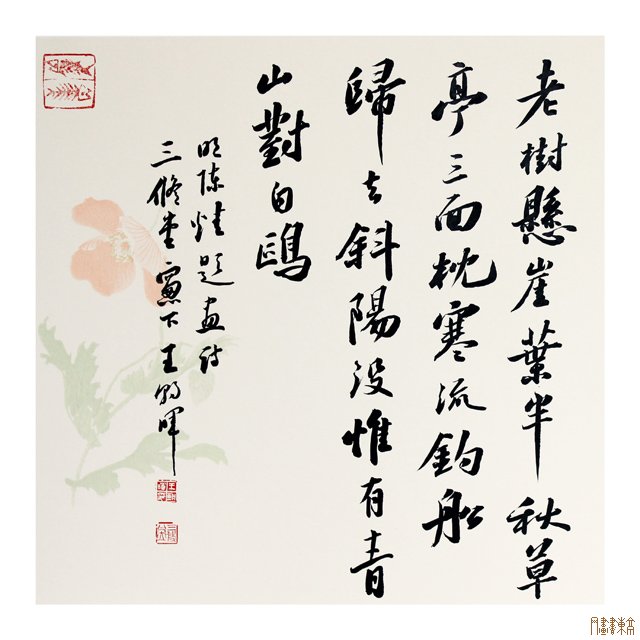 老樹懸崖葉半秋草
亭三面枕寒流釣船
歸去斜陽没惟有青
山對白鷗
明陳煃題畫詩
三脩堂窗下王朝暉